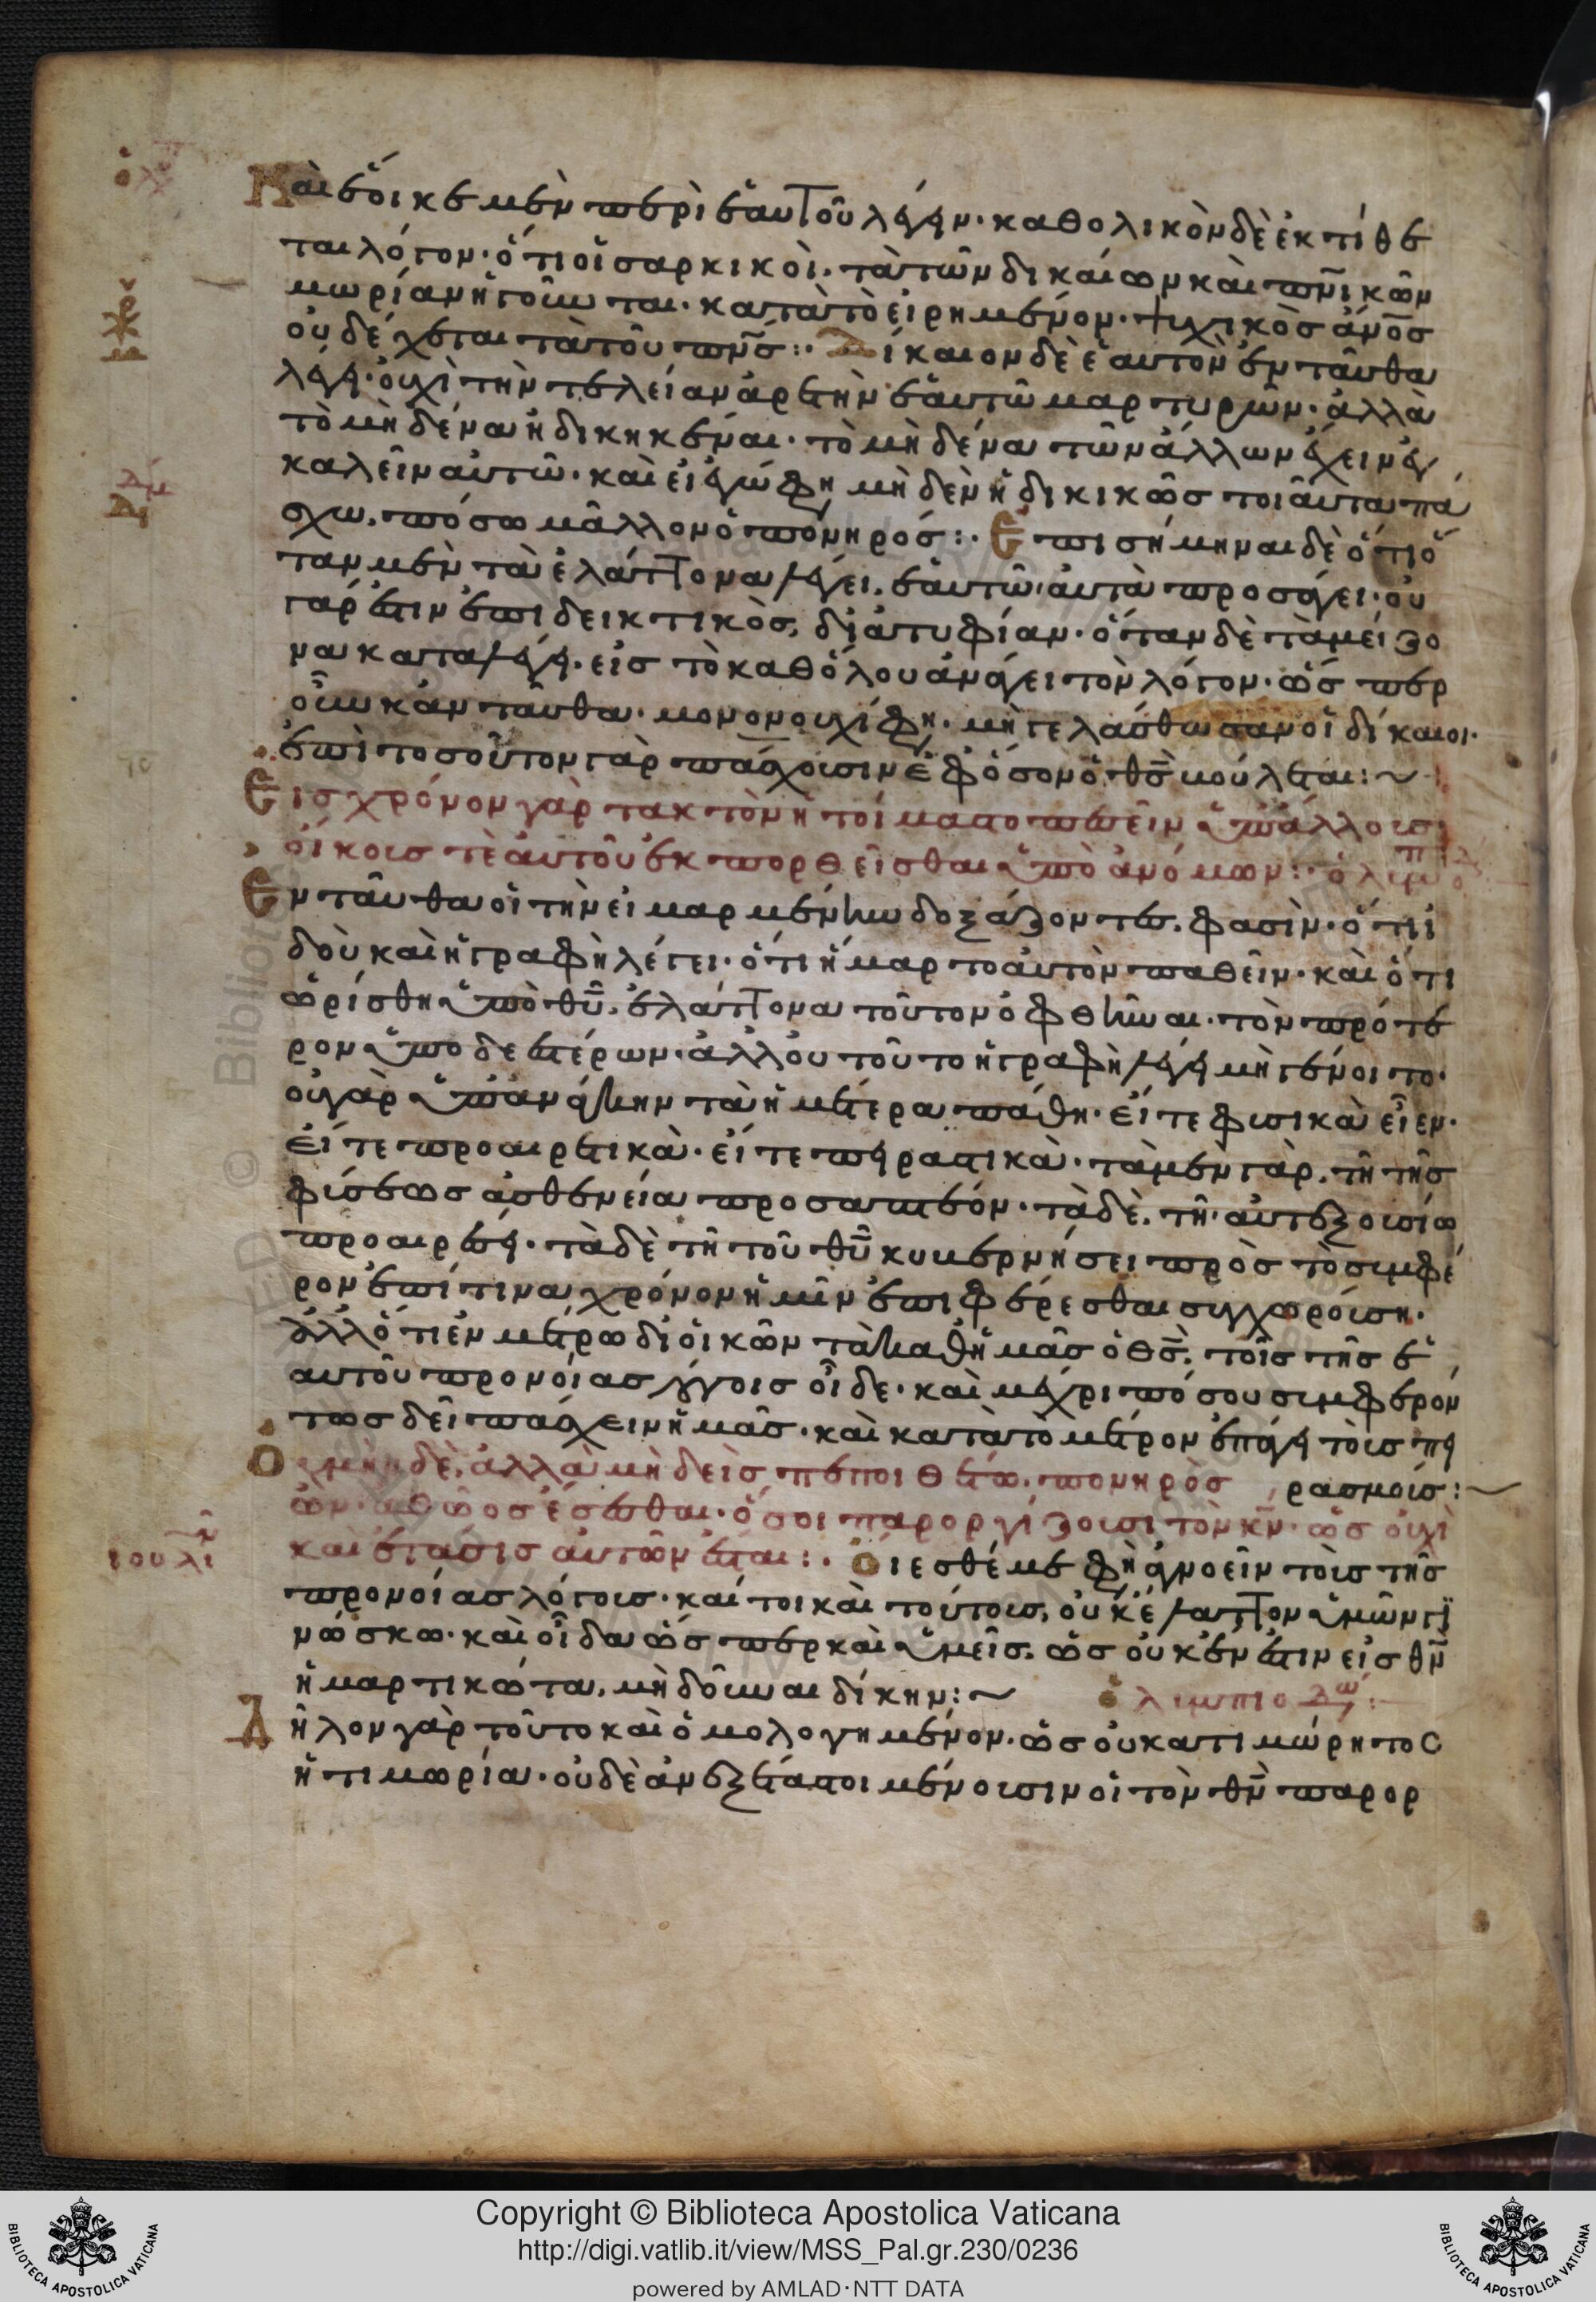 Καὶ ἔοικε μὲν περὶ ἑαυτοῦ λέγειν· καθολικὸν δὲ ἐκτίθε
ται λόγον· ὅτι οἱ σαρκικοὶ· τὰ τῶν δικαίων καὶ πνικῶν
μωρίαν ἡγοῦνται· κατὰ τὸ εἰρημένον· ψυχικὸς ἄνος
οὐ δέχεται τὰ τοῦ πνς:· Δίκαιον δὲ ἑαυτὸν ἐνταῦθα
λέγει· οὐχὶ τὴν τελείαν ἀρετὴν ἑαυτῶ μαρτυρῶν· ἀλλὰ
τὸ μηδένα ἠδικηκέναι· τὸ μηδένα τῶν ἄλλων ἔχειν ἐγ
καλεῖν αὐτῶ· καὶ εἰ ἐγώ φη μηδὲν ἠδικικὼς τοιαῦτα πά
σχω, πόσω μᾶλλον ὁ πονηρός:· Ἐπισήμηναι δὲ ὅτι ὅ
ταν μὲν τὰ ἐλάττονα λέγει, ἑαυτῶ αὐτὰ προσάγει· οὐ
γάρ ἐστιν ἐπιδεικτικὸς, δι' ἀτυφίαν· ὅταν δὲ τὰ μείζο
να καταλέγει· εἰς τὸ καθόλου ἀνάγει τὸν λόγον· ὥσπερ
οὖν κἀνταῦθα· μονονουχί φη· μὴ γελάσθωσαν οἱ δίκαιοι·
ἐπὶ τοσοῦτον γὰρ πάσχουσιν ἐφόσον ὁ θς βούλεται:~
Εἰς χρόνον γὰρ τακτὸν ἡτοίμαστο πεσεῖν ὑπ' ἄλλους
οἴκους τὲ αὐτοῦ ἐκπορθεῖσθαι ὑπὸ ἀνόμων:· ὀλυμπιοδ
Ἐνταῦθα οἱ τὴν εἱμαρμένην δοξάζοντες, φασὶν· ὅτι ἰ
δοὺ καὶ ἡ γραφὴ λέγει· ὅτι ἥμαρτο αὐτὸν παθεῖν· καὶ ὅτι
ὡρίσθη ὑπὸ θυ, ἐλάττονα τοῦτον ὀφθῆναι· τὸν πρότε
ρον ὑποδεεστέρων· ἀλλ' οὐ τοῦτο ἡ γραφὴ λέγει μὴ γένοιτο·
οὐ γὰρ ὑπ' ἀνάγκην τὰ ἡμέτερα πάθη· εἴτε φυσικὰ εἶεν·
εἴτε προαιρετικὰ· εἴτε πειρατικὰ· τὰ μὲν γὰρ, τῆ τῆς
φύσεως ἀσθενεία προσαπτέον· τὰ δὲ, τῆ αὐτεξουσίω
προαιρέσει· τὰ δὲ τῆ τοῦ θυ κυβερνήσει πρὸς τὸ συμφέ
ρον ἐπί τινα χρόνον ἡμῖν ἐπιφέρεσθαι συγχωρούση·
ἀλλ' ὅτι ἐν μέτρω διοικῶν τὰ καθ' ἡμᾶς ὁ θς, τοῖς τῆς ἑ
αυτοῦ προνοίας λόγοις οἶδε· καὶ μέχρι πόσου συμφερόν
τως δεῖ πάσχειν ἡμᾶς· καὶ κατὰ τὸ μέτρον ἐπάγει τοῖς πει
ρασμοῖς:~
Οὐ μὴν δὲ, ἀλλὰ μηδεὶς πεποιθέτω, πονηρὸς
ὢν· ἀθῶος ἔσεσθαι· ὅσοι παροργίζουσι τὸν κν· ὡς οὐχὶ
ιουλι
καὶ ἔτασις αὐτῶν ἔσται:· Οἴεσθέ με φὴ ἀγνοεῖν τοὺς τῆς
προνοίας λόγους· καί τοι καὶ τούτους, οὐκ ἔλαττον ὑμῶν γι
νώσκω· καὶ οἶδα ὥσπερ καὶ ὑμεῖς, ὡς οὐκ ἔνεστιν εἰς θν
ἡμαρτικότα, μὴ δοῦναι δίκην:~ ὀλυμπιοδω:
Δῆλον γὰρ τοῦτο καὶ ὁμολογημένον· ὡς οὐκ ἀτιμώρητος
ἡ τιμωρία· οὐδὲ ἀνεξέταστοι μένουσιν οἱ τὸν θν παρορ
Copyright © Biblioteca Apostolica Vaticana
http://digi.vatlib.it/view/MSS_Pal.gr.230/0236
powered by AMLAD·NTT DATA
BIBLIOTECA APOSTOLICA VATICANA
BIBLIOTECA APOSTOLICA VATICANA